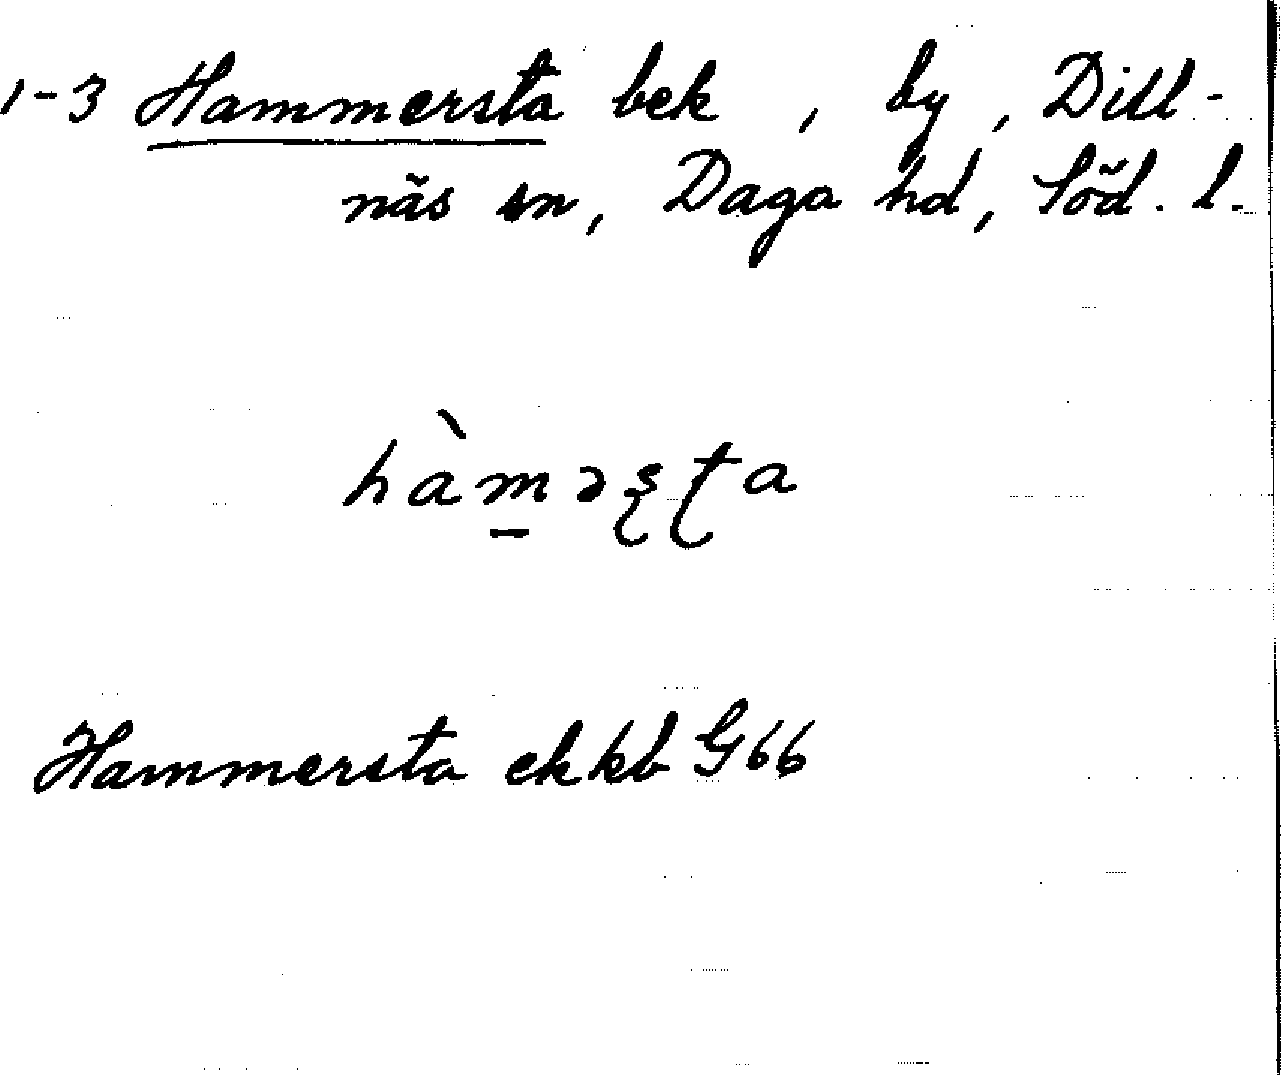 1-3 Hammersta bek, by, Dill-
näs sn, Daga hd, Söd. l.
hàm̱əʂʈa
Hammersta ekkb G66